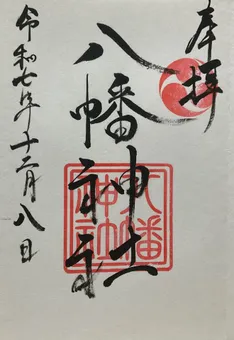 奉拝
八幡神社
令和七年十二月八日
八幡